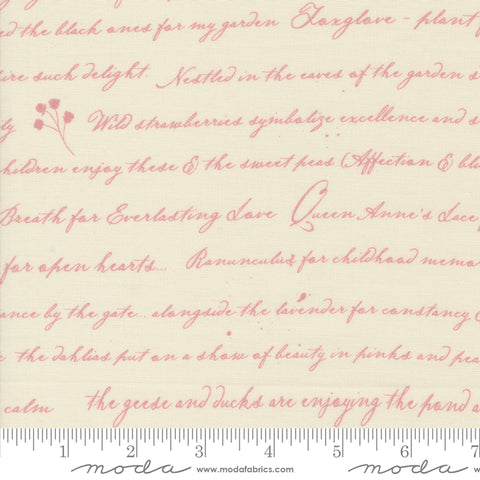 ed the black ones for my garden Foxglove - plant f
ire such delight. Nestled in the eaves of the garden s
ly Wild strawberries symbolize excellence and s
children enjoy these & the sweet peas (Affection & blu
Breath for Everlasting Love Queen Anne's Lace
for open hearts... Ranunculus for childhood memo
ance by the gate... alongside the lavender for constancy &
e the dahlias put on a show of beauty in pinks and pea
calm the geese and ducks are enjoying the pond a
1 2 3 4 5 6 7
moda www.modafabrics.com moda